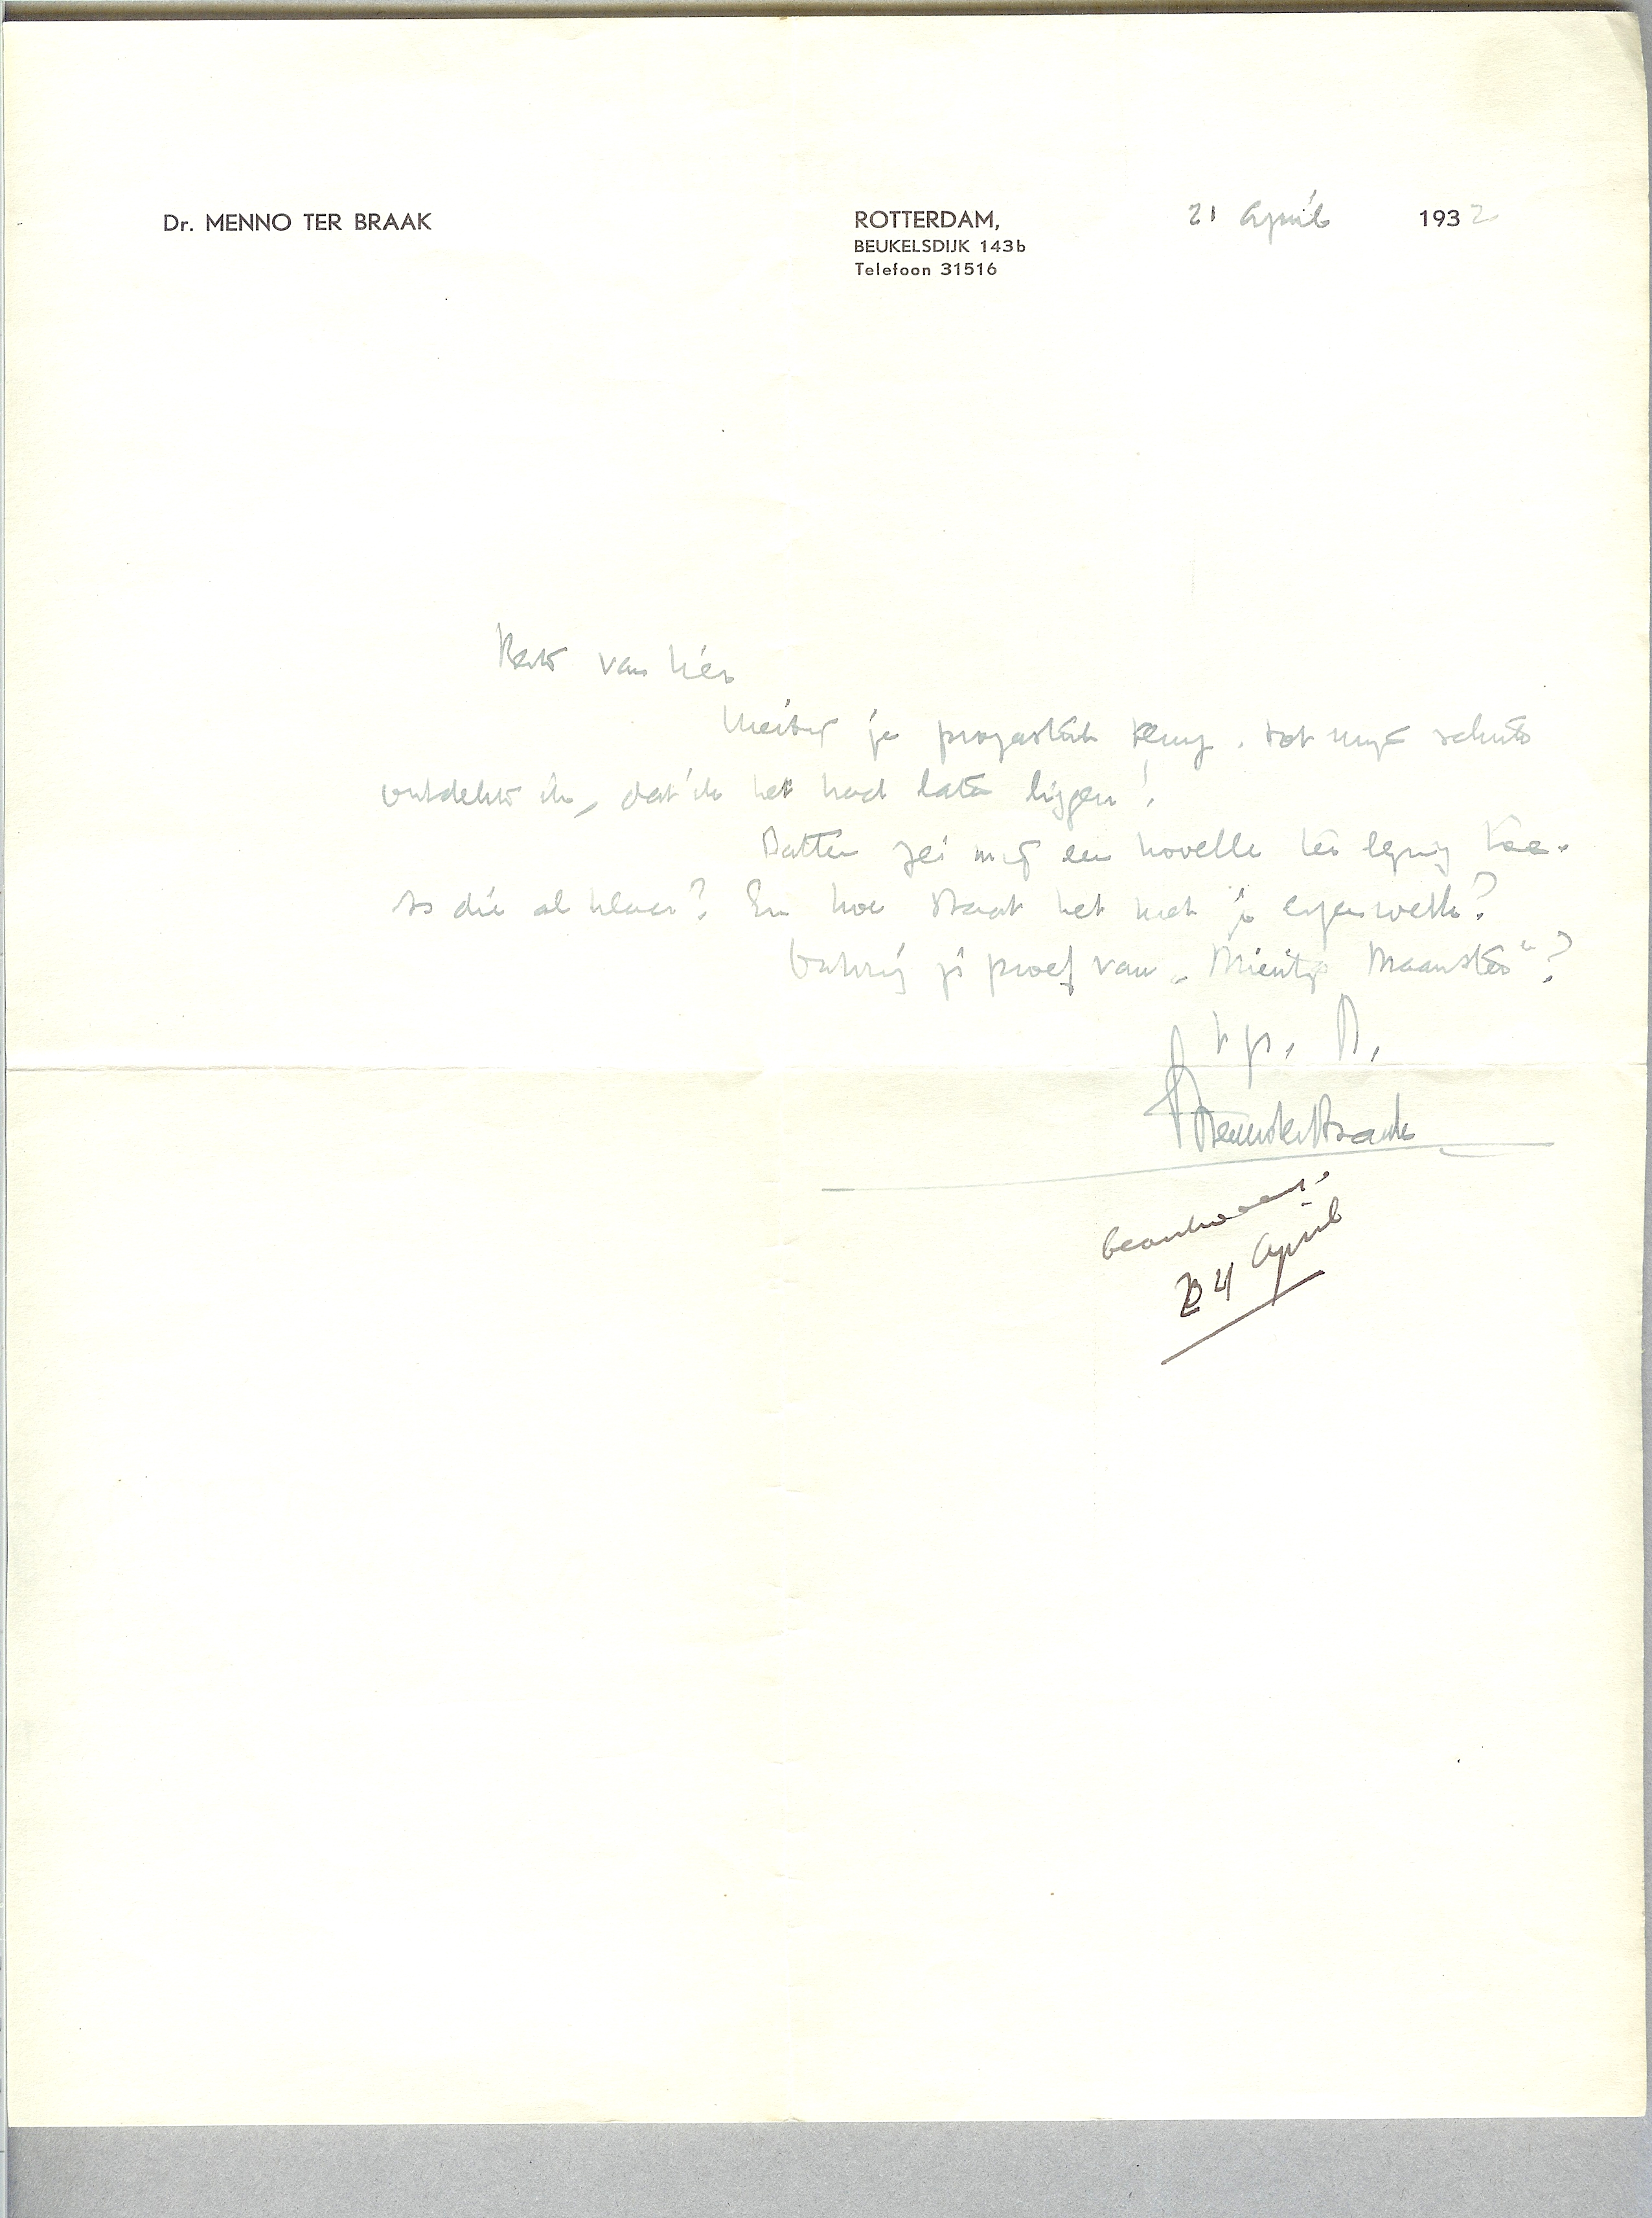 Dr. MENNO TER BRAAK
ROTTERDAM, 21 April 1932
BEUKELSDIJK 143b
Telefoon 31516
Beste van Lier
Hierbij je prozastuk terug. Tot mijn schrik
ontdekte ik, dat ik het had laten liggen!
Batten zei mij een novelle ter lezing toe.
Is die al klaar? En hoe staat het met je eigen werk?
Ontving je proef van „Mientje Maanster"?
t.g. h.
Menno ter Braak
beantwoord:
24 April